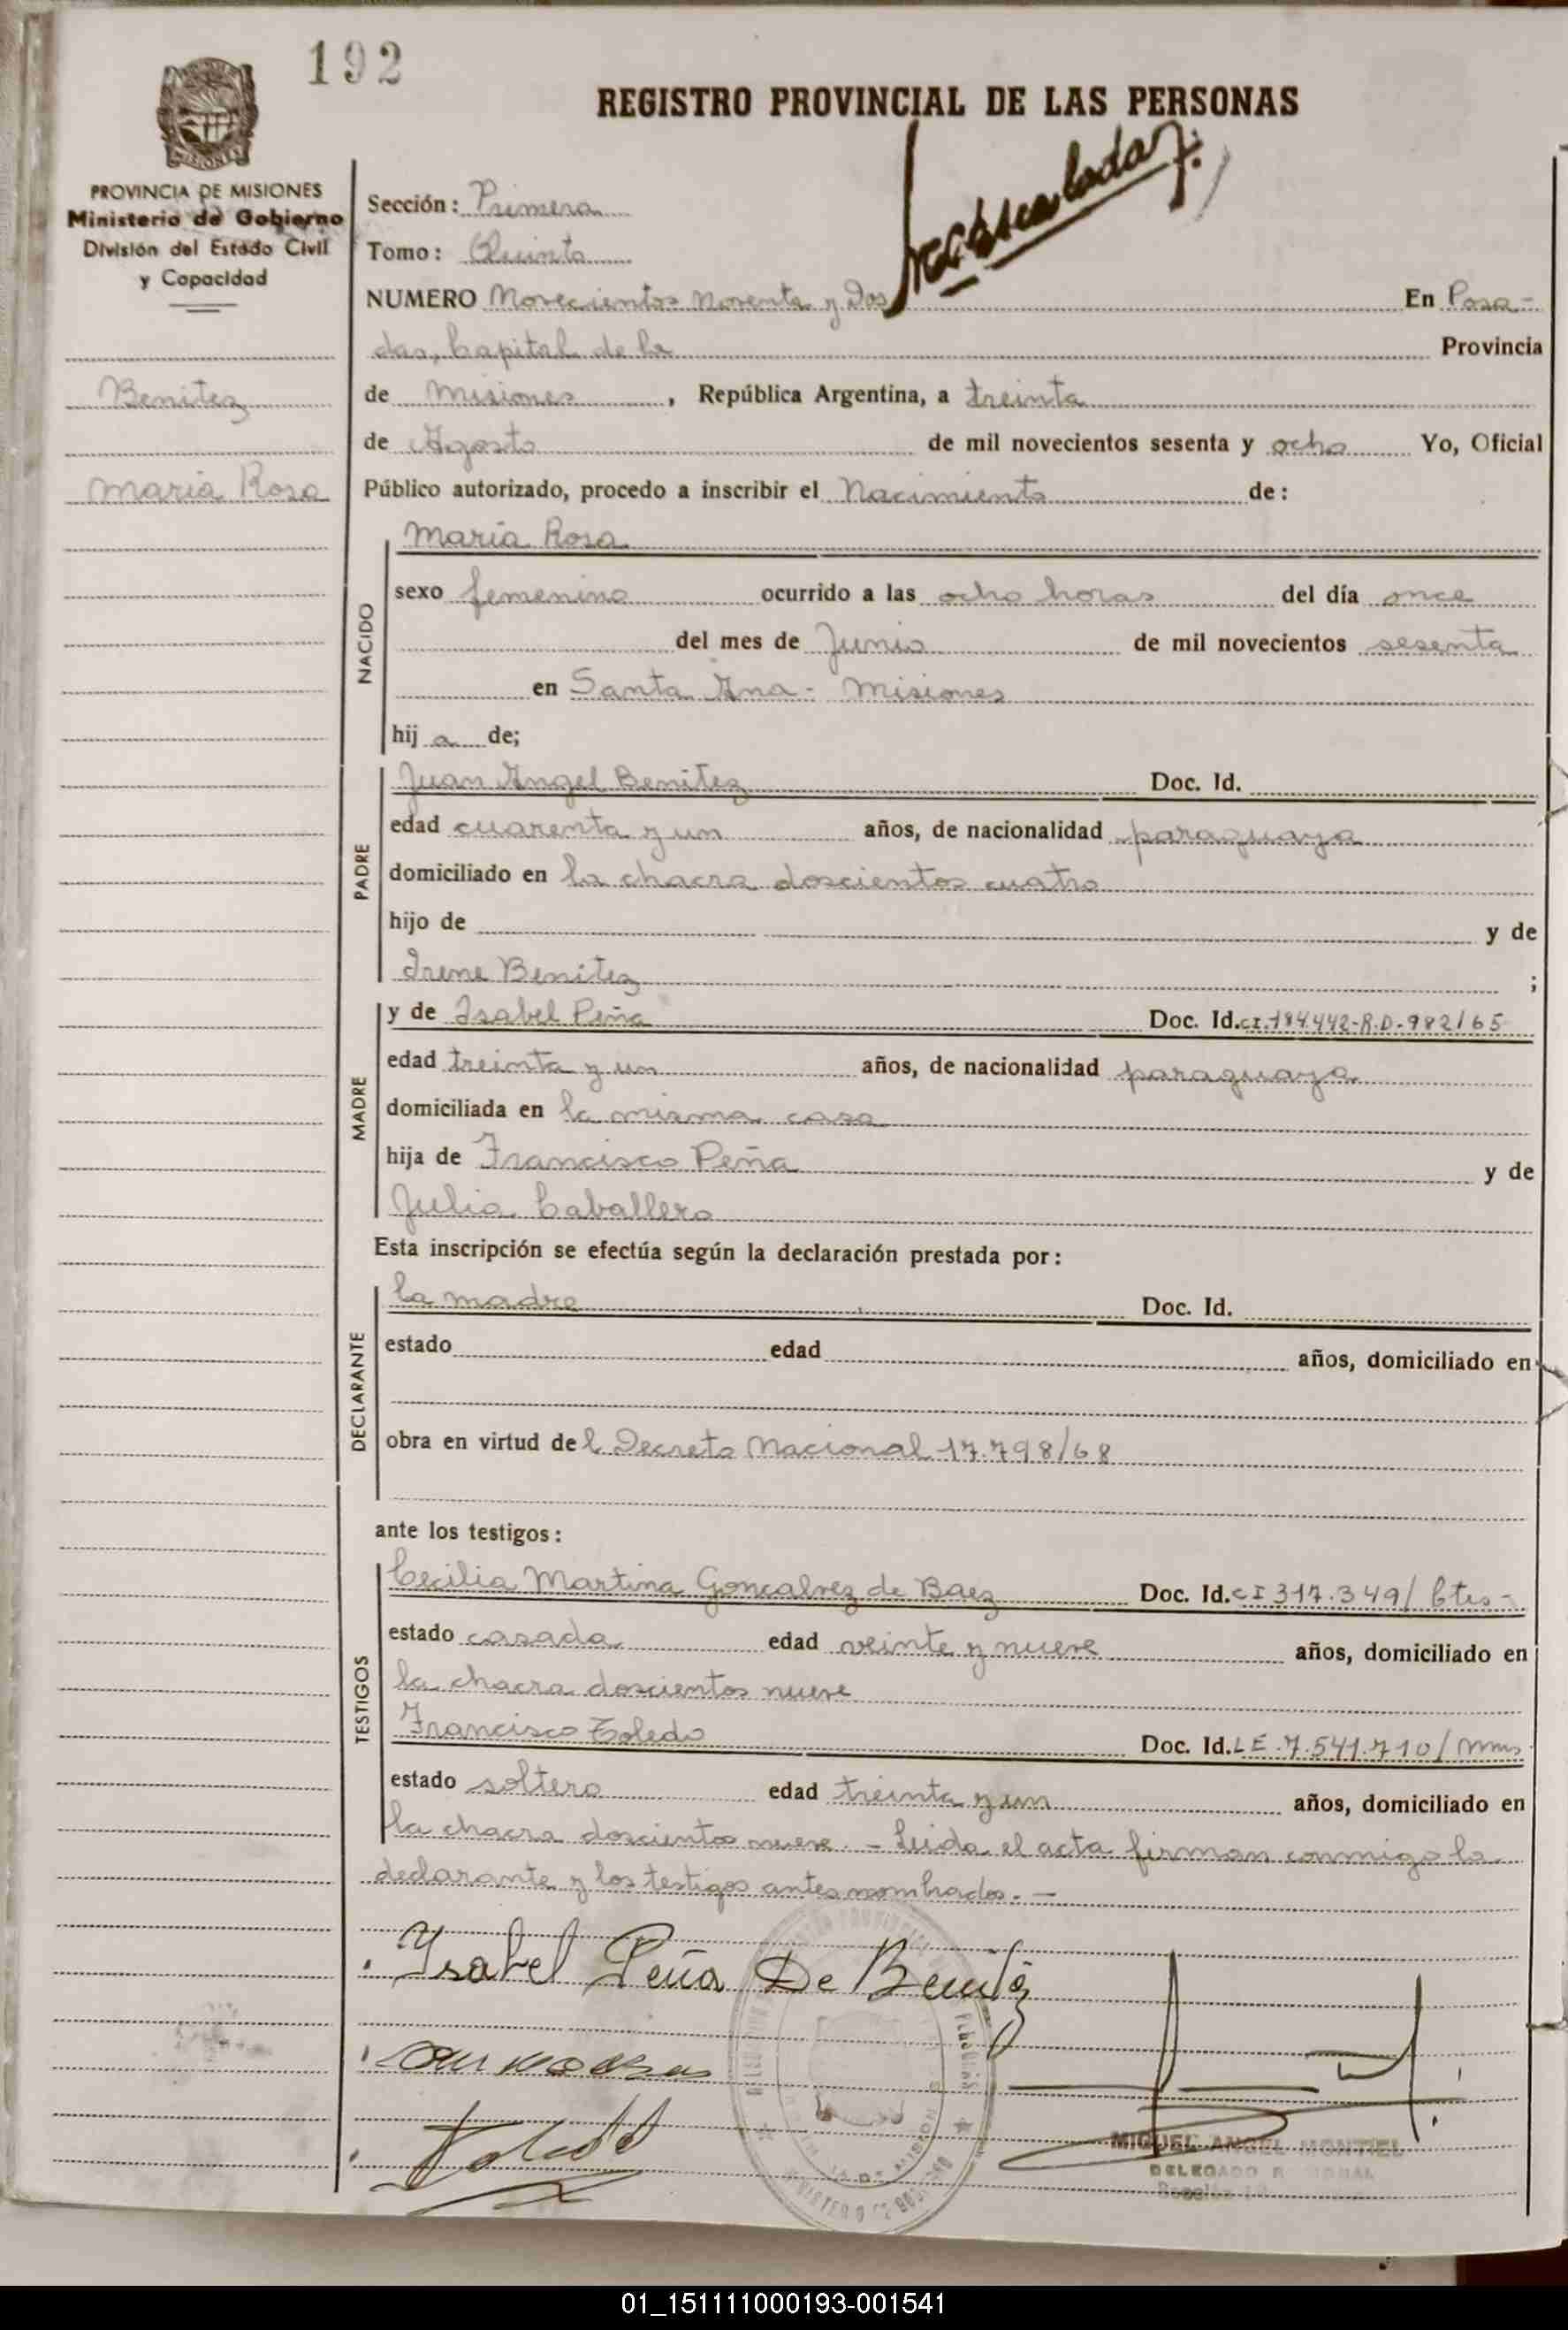 192
REGISTRO PROVINCIAL DE LAS PERSONAS
MISIONES
PROVINCIA DE MISIONES
Ministerio de Gobierno
División del Estado Civil
y Capacidad
Benitez
Maria Rosa
Sección: Primera
Tomo: Quinto
NUMERO Novecientos noventa y Dos En Posa-
das, Capital de la Provincia
de Misiones, República Argentina, a treinta
de Agosto de mil novecientos sesenta y ocho Yo, Oficial
Público autorizado, procedo a inscribir el Nacimiento de:
NACIDO
María Rosa
sexo femenino ocurrido a las ocho horas del día once
del mes de Junio de mil novecientos sesenta
en Santa Ana - Misiones
hij a de;
PADRE
Juan Angel Benitez Doc. Id.
edad cuarenta y un años, de nacionalidad paraguaya
domiciliado en la chacra doscientos cuatro
hijo de y de
Irene Benitez ;
MADRE
y de Isabel Peña Doc. Id. CI. 184.442-R.D-982/65
edad treinta y un años, de nacionalidad paraguaya
domiciliada en la misma casa
hija de Francisco Peña y de
Julia Caballero
Esta inscripción se efectúa según la declaración prestada por:
DECLARANTE
la madre Doc. Id.
estado edad años, domiciliado en
obra en virtud del Decreto Nacional 17.798/68
ante los testigos:
TESTIGOS
Cecilia Martina Goncalvez de Baez Doc. Id. CI 317.349/Ctes-
estado casada edad veinte y nueve años, domiciliado en
la chacra doscientos nueve
Francisco Toledo Doc. Id. LE.7.541.710/Mnes
estado soltero edad treinta y un años, domiciliado en
la chacra doscientos nueve. - Leida el acta firman conmigo la
declarante y los testigos antes nombrados. -
Ysabel Peña De Benitez
MIGUEL ANGEL MONTIEL
DELEGADO
01_151111000193-001541